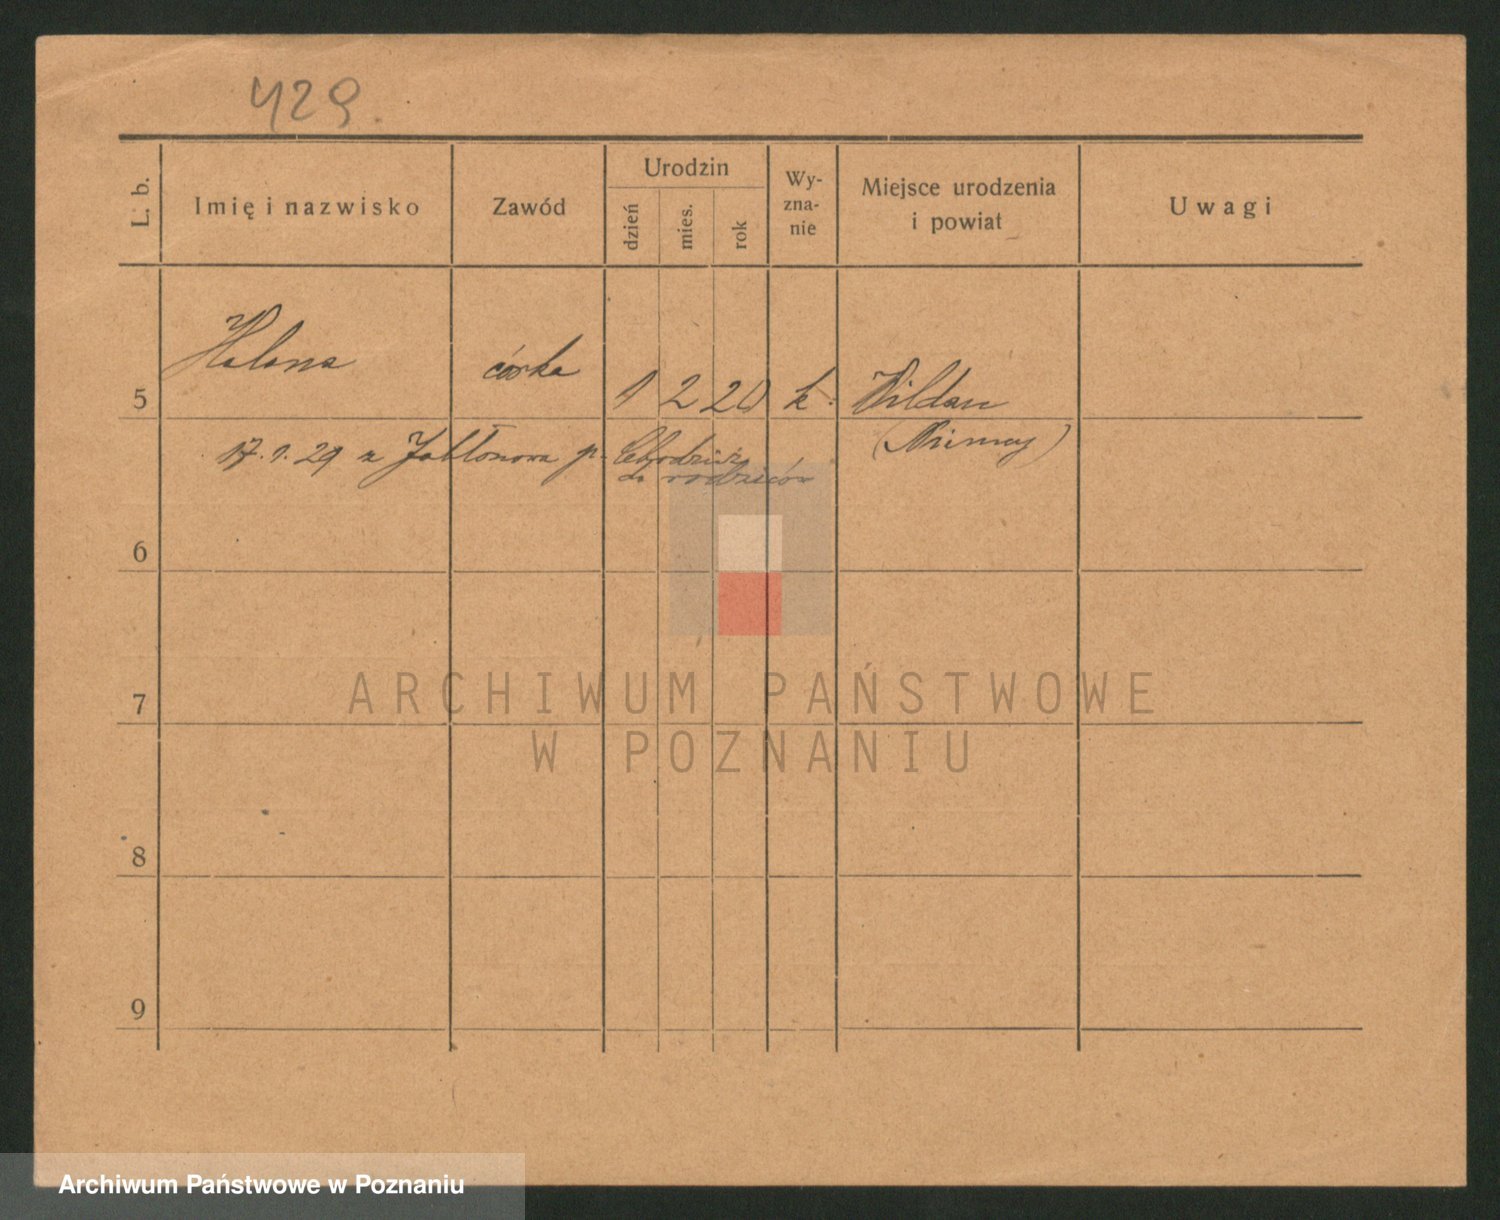 429.
L. b.
Imię i nazwisko
Zawód
Urodzin
dzień
mies.
rok
Wy-
zna-
nie
Miejsce urodzenia
i powiat
Uwagi
5
Helena
córka
1
2
20
k.
Wildau
(Niemcy)
17.1.29 z Jabłonowa p. Chodzież
do rodziców
6
7
8
9
ARCHIWUM PAŃSTWOWE
W POZNANIU
Archiwum Państwowe w Poznaniu